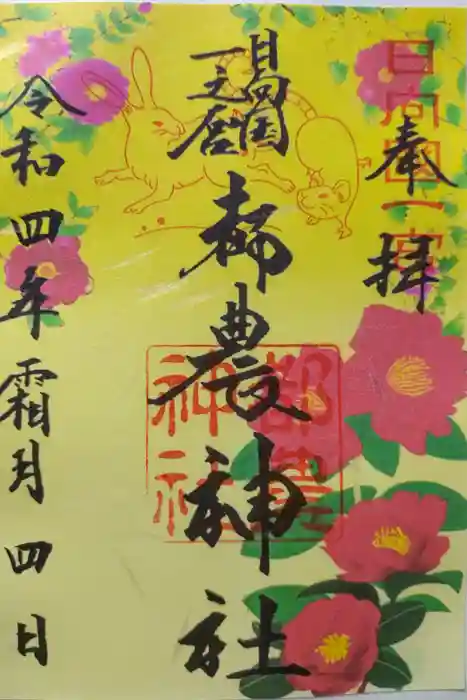 奉拝
日向國一宮
日向国
一之宮
都農神社
都農
神社
令和四年霜月四日